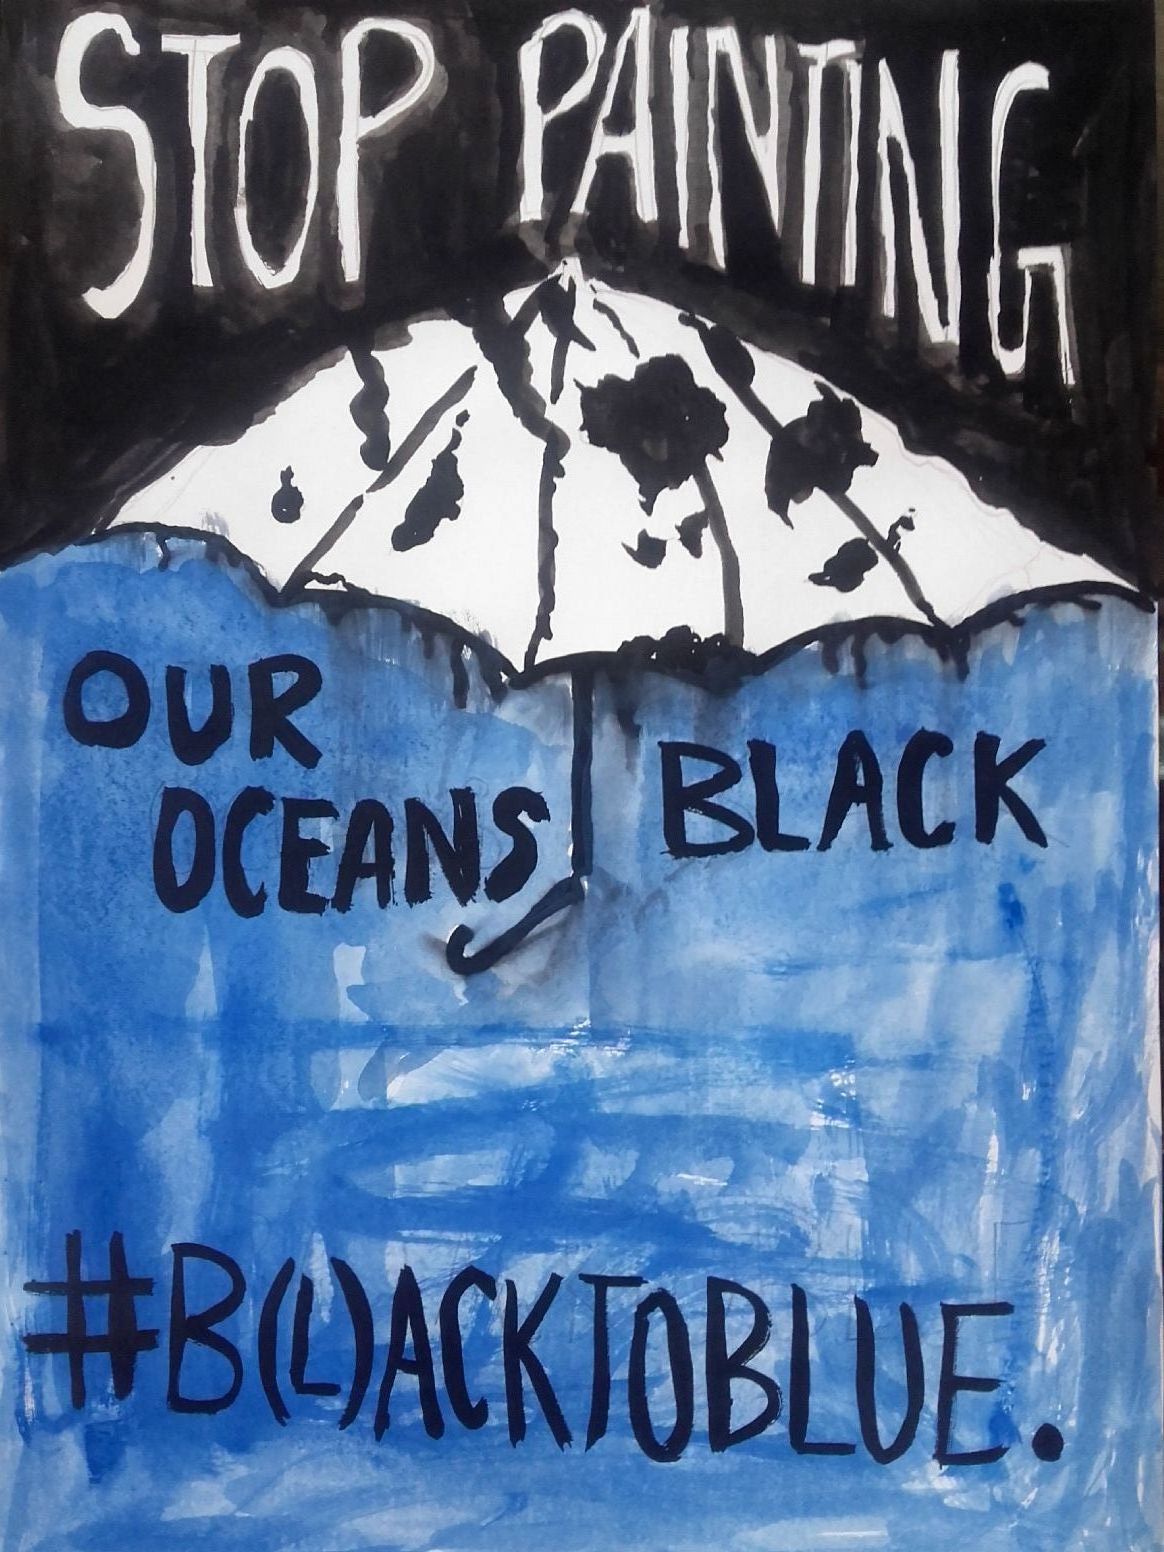 STOP PAINTING
OUR
OCEANS BLACK
#B(L)ACKTOBLUE.